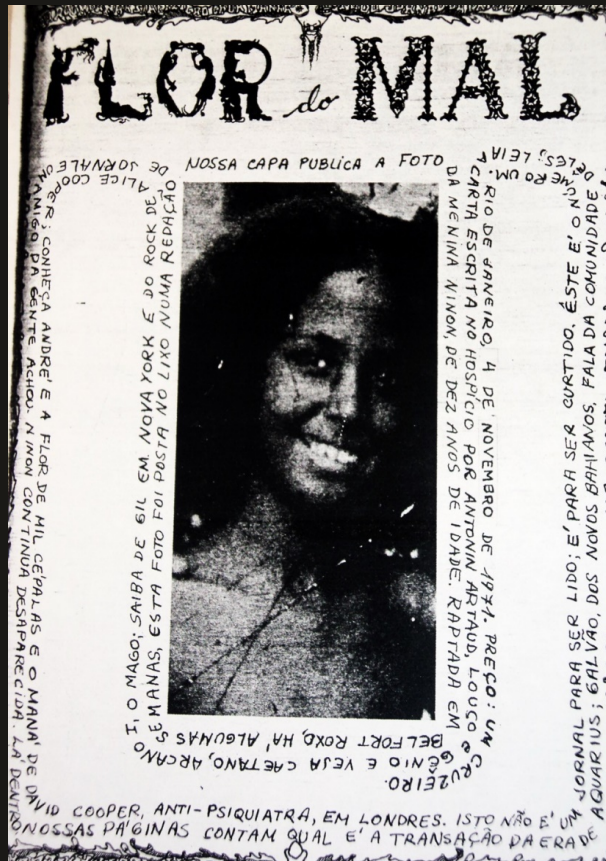 FLOR do MAL
NOSSA CAPA PUBLICA A FOTO
DA MENINA NINON, DE DEZ ANOS DE IDADE. RAPTADA EM
BELFORT ROXO, HÁ ALGUMAS
SEMANAS, ESTA FOTO FOI POSTA NO LIXO NUMA REDAÇÃO
DE JORNAL E UM
AMIGO DA GENTE ACHOU. NINON CONTINUA DESAPARECIDA. LÁ DENTRO
NOSSAS PÁGINAS CONTAM QUAL É A TRANSAÇÃO DA ERA DE
AQUARIUS; GALVÃO, DOS NOVOS BAHIANOS, FALA DA COMUNIDADE
DELES; LEIA A
CARTA ESCRITA NO HOSPÍCIO POR ANTONIN ARTAUD, LOUCO E
GÊNIO E VEJA CAETANO, ARCANO
I, O MAGO; SAIBA DE GIL EM NOVA YORK E DO ROCK DE
ALICE COOPER; CONHEÇA ANDRÉ E A FLOR DE MIL CÉPALAS E O MANÁ DE
DAVID COOPER, ANTI-PSIQUIATRA, EM LONDRES. ISTO NÃO É UM
JORNAL PARA SER LIDO; É PARA SER CURTIDO. ÊSTE É O NÚMERO UM.
RIO DE JANEIRO, 4 DE NOVEMBRO DE 1971. PREÇO: UM
CRUZEIRO.